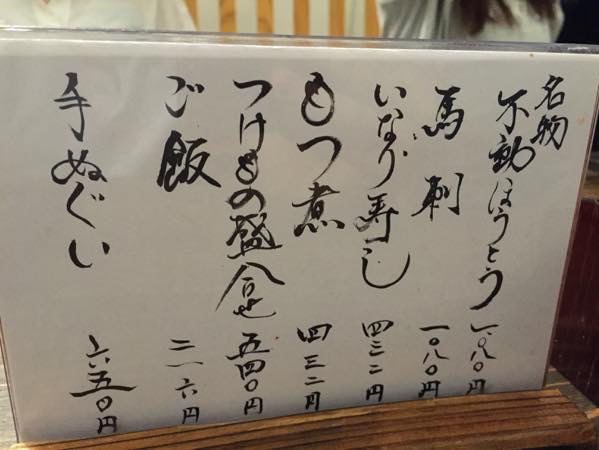 名物
不動ほうとう 一〇八〇円
馬刺 一〇八〇円
いなり寿し 四三二円
もつ煮 四三二円
つけもの盛合せ 五四〇円
ご飯 二一六円
手ぬぐい 六五〇円